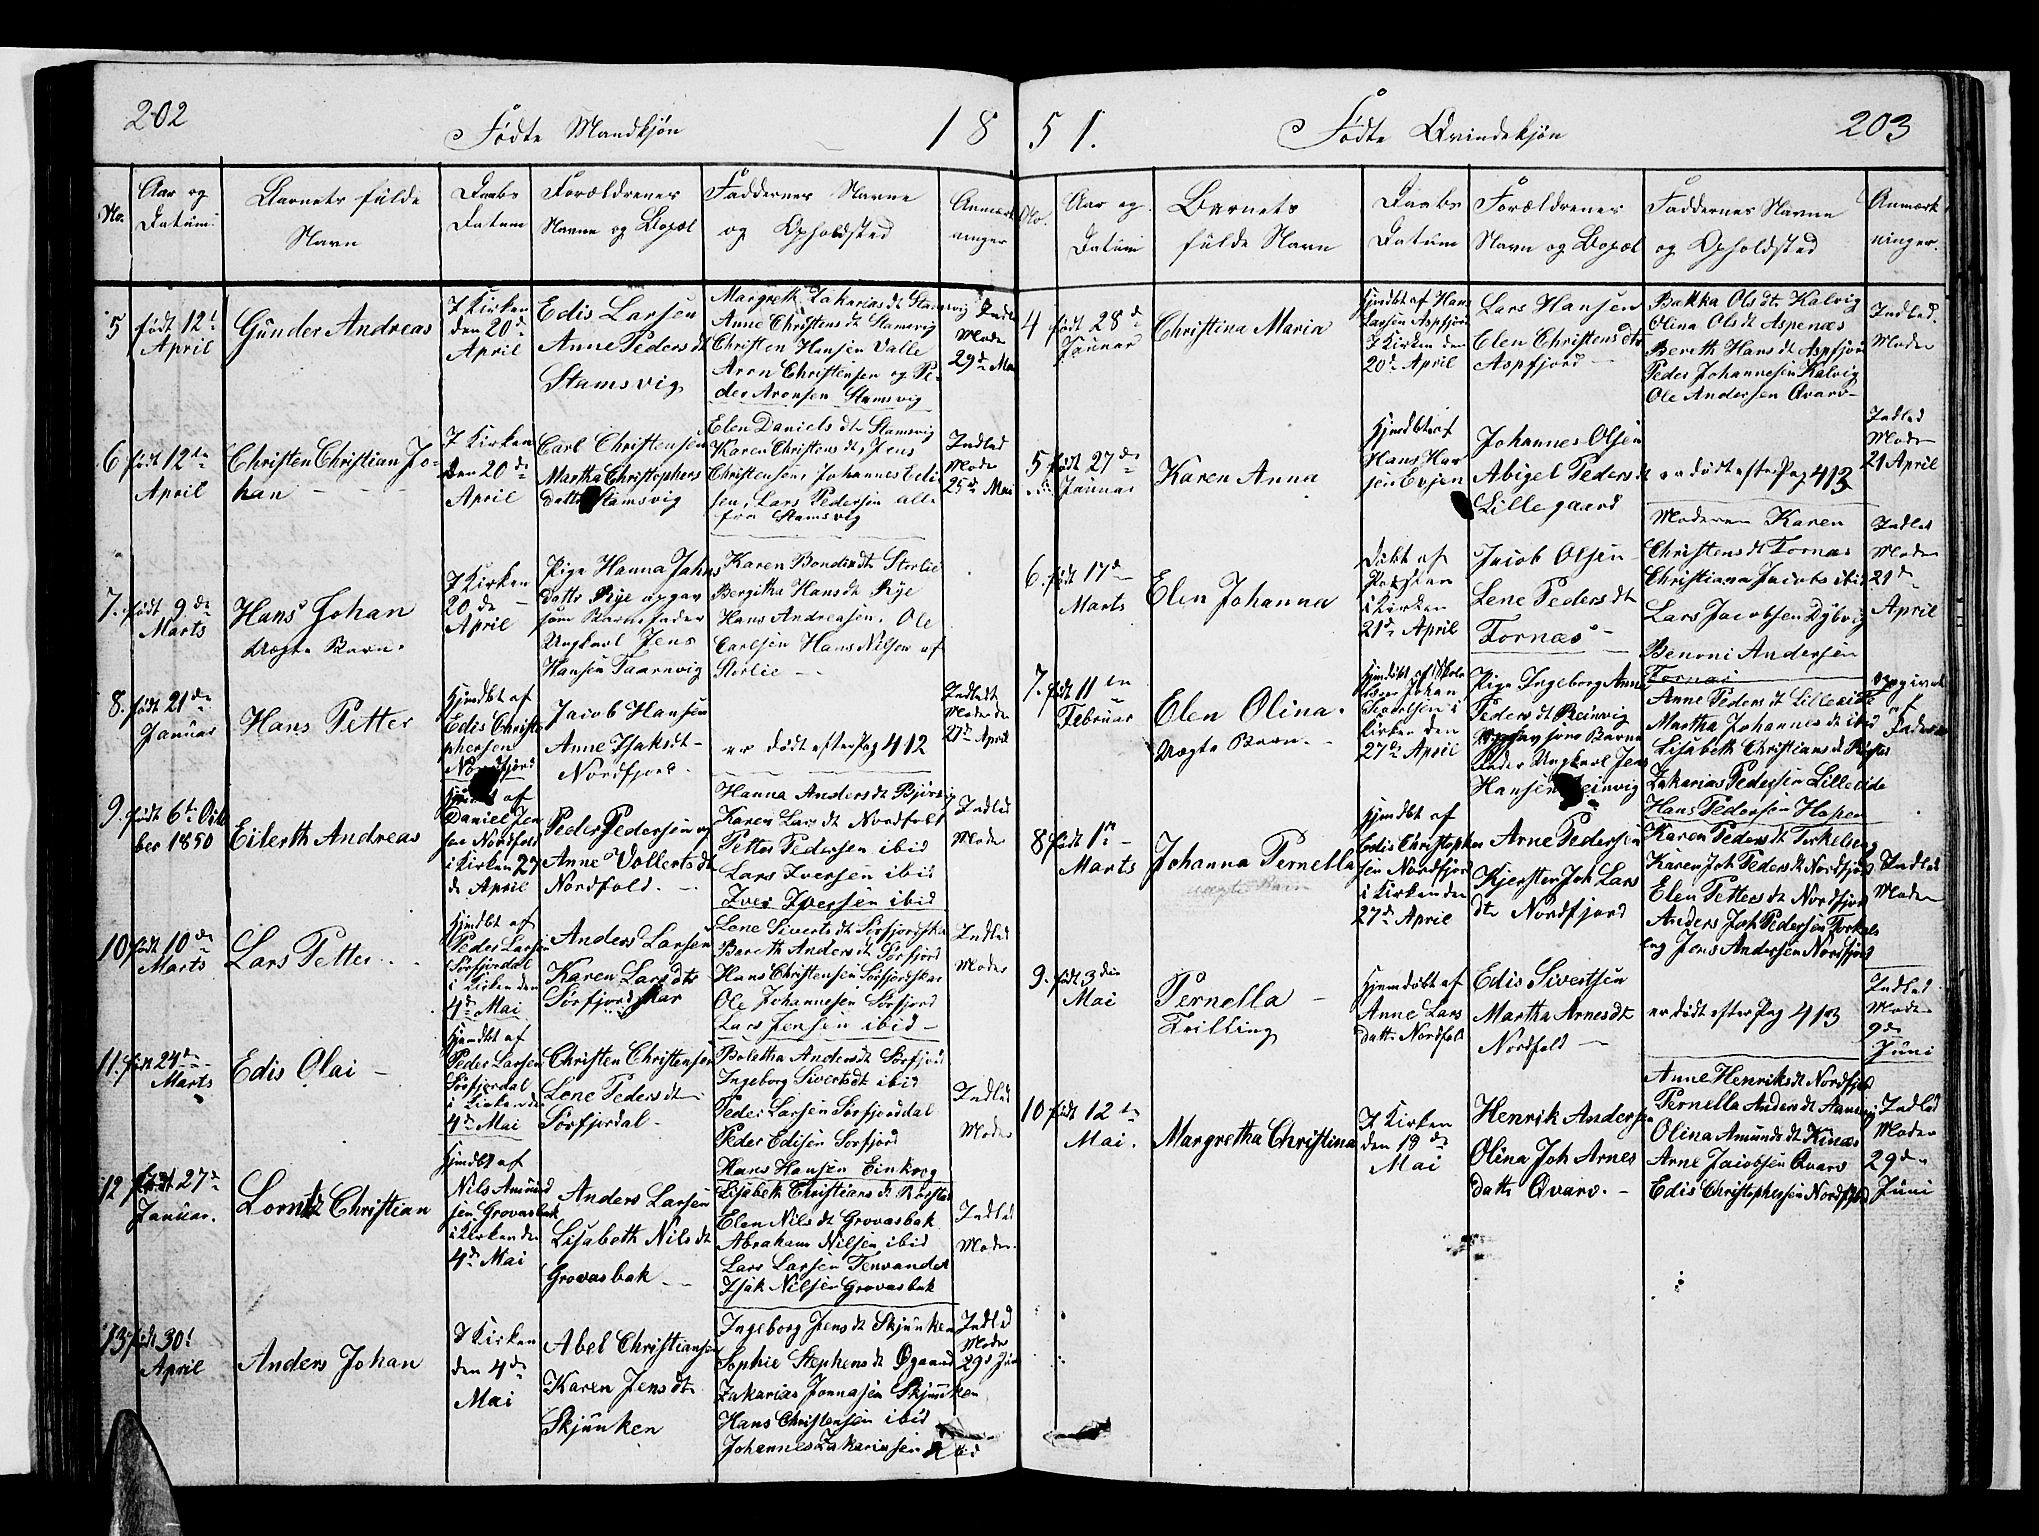 202
Fødte Mandkjøn
18
No.
Aar og
Datum
Barnets fulde
Navn
Daabs
Datum
Forældrenes
Navne og Bopæl
Faddernes Navne
og Opholdsted
Anmærk
ninger
5
født 12t
April
Gunder Andreas
I Kirken
den 20de
April
Edis Larsen
Anne Pedersdt
Stamsvig
Margreth Zakariasdt Stamsvig
Anne Christensdt Stamsvig
Christen Hansen Valle
Aron Christensen og Pe-
der Aronsen Stamsvig
Indled
Moder
29de Mai
6
født 12te
April
Christen Christian Jo-
han
I Kirken
den 20de
April
Carl Christensen
Martha Christophers
datter Stamsvig
Elen Danielsdt Stamsvig
Karen Christensdt, Jens
Christensen, Johannes Edi-
sen, Lars Pedersen alle
fra Stamsvig
Indled
Moder
25de Mai
7.
født 9de
Marts
Hans Johan
Uægte Barn.
I Kirken
20de
April
Pige Hanna Johns
datter Rye opgav
som Barnefader
Ungkarl Jens
Hansen Taarnvig
Karen Bondesdt Storlie
Bergitha Hansdt Rye
Hans Andreasen, Ole
Carlsen Hans Nilsen af
Storlie
8.
født 21de
Januar
Hans Petter
Hjmdbt af
Edis Christo
phersen
Nordfjord
Jacob Hansen
Anne Isaksdt
Nordfjord.
er død efter Pag 412
Indledt
Moder den
27de April
9.
født 6te Octo
ber 1850
Eilerth Andreas
Hjmdbt af
Daniel Jen
sen Nordfold
i Kirken 27
de April
Peder Pedersen og
Anne Vollertsdt
Nordfold.
Hanna Andersdt Bjørsvig
Karen Larsdt Nordfold
Petter Pedersen ibid
Lars Iversen ibid
Iver Iversen ibid
Indled
Moder
10
født 10de
Marts
Lars Petter
Hjmdbt af
Peder Larsen
Sørfjordal
i Kirken den
4de Mai
Anders Larsen
Karen Larsdtr
Sørfjordskar
Lene Sivertsdt Sørfjordskar
Bareth Andersdt Sørfjord
Hans Christensen Sørfjordskar
Ole Johannesen Sørfjord
Lars Jensen ibid
Indled
Moder
11.
født 24de
Marts
Edis Olai
Hjmdbt af
Peder Larsen
Sørfjordal
i Kirken den
4de Mai
Christen Christensen
Lene Pedersdt
Sørfjordal
Boletha Andersdt Sørfjord
Ingeborg Sivertsdt ibid
Peder Larsen Sørfjorddal
Peder Edisen Sørfjord
Hans Hansen Einkorg
Indled
Moder
12
født 27de
Januar.
Lorntdt Christian
Hjmdbt af
Nils Amund
sen Grovasbak
i Kirken den
4de Mai
Anders Larsen
Lisabeth Nilsdt
Grovasbak
Lisabeth Christiansdt Røstad
Elen Nilsdt Grovasbak
Abraham Nilsen ibid
Lars Larsen Tenvandet
Isak Nilsen Grovasbak
Indled
Moder
13
født 30t
April
Anders Johan
I Kirken
den 4de
Mai
Abel Christiansen
Karen Jensdt
Skjunken
Ingeborg Jensdt Skjunken
Sophie Stephensdt Øgaard
Zakarias Jonnasen Skjunken
Hans Christensen ibid
Johannes Zakariasen ibid
Indled
Moder
29de Juni
51.
Fødte Qvindekjøn
203
No.
Aar og
Datum
Barnets
fulde Navn
Daabs
Datum
Forældrenes
Navn og Bopæl
Faddernes Navne
og Opholdsted
Anmærk
ninger.
4
født 28de
Januar
Christina Maria
Hjmdbt af Hans
Larsen Aspfjord
I Kirken den
20de April
Lars Hansen
Elen Christensdtr
Aspfjord
Bakka Olsdt Kalvig
Olina Olsdt Aspenæs
Bereth Hansdt Aspfjord
Peder Johannesen Kalvig
Ole Andersen Qvarv
Indled.
Moder
5
født 27de
Januar
Karen Anna
Hjmdbt af
Hans Han
sen Evjen
Johannes Olsen
Abigel Pedersdt
Lillegaard
er død efter Pag 413
Indled
Moder
21 April
6.
født 17de
Marts
Elen Johanna
Døbt af
Præsten
i Kirken
21de April
Jacob Olsen
Lene Pedersdt
Tornæs
Moderen Karen
Christensdt Tornæs
Christiana Jacobs ibid
Lars Jacobsen Dybvig
Benoni Andersen
Tornæs
Indled
Moder
21de
April
7.
født 11en
Februar
Elen Olina.
Uægte Barn.
Hjmdøbt af Skole
lærer Johan
i
Kirken den
27de April
Pige Ingeborg Anne
Pedersdt Reinvig
Opgav som Barne
fader Ungkarl Jens
Hansen Reinvig
Anne Pedersdt Lilleeide
Martha Johannesdt ibid
Lisabeth Christiansdt Røstad
Zakarias Pedersen Lilleeide
Hans Pedersen Hopen
opgivet
af
Faderen
8
født 1n
Marts
Johanna Pernella
uægte Barn
Hjmdbt af
Edis Christopher
sen Nordfjord
i Kirken den
27de April
Arne Pedersen
Kjersten Joh Lars
dtr Nordfjord
Karen Pedersdt Torkeleng
Karen Joh Pedersdt Nordfjord
Elen Pettersdt Nordfjord
Anders Joh Pedersen Torkel
eng Jens Andersen Nordfjord
Indled
Moder
9.
født 3die
Mai
Pernella
Trilling
Hjemdøbt af
Anne Lars
datter Nordfold
Edis Sivertsen
Martha Arnesdt
Nordfold
er død efter Pag 413
Indled.
Moder
9de
Juni
10
født 12te
Mai.
Margretha Christina
I Kirken
den 18de
Mai
Henrik Andersen
Olina Joh Arnes
datter Qvarv.
Anne Henriksdt Nordfjord
Pernella Andersdt
Olina Amundsdt Kinæs
Arne Jacobsen Qvarv
Edis Christophersen Nordfjord
Indled
Moder
29de
Juni